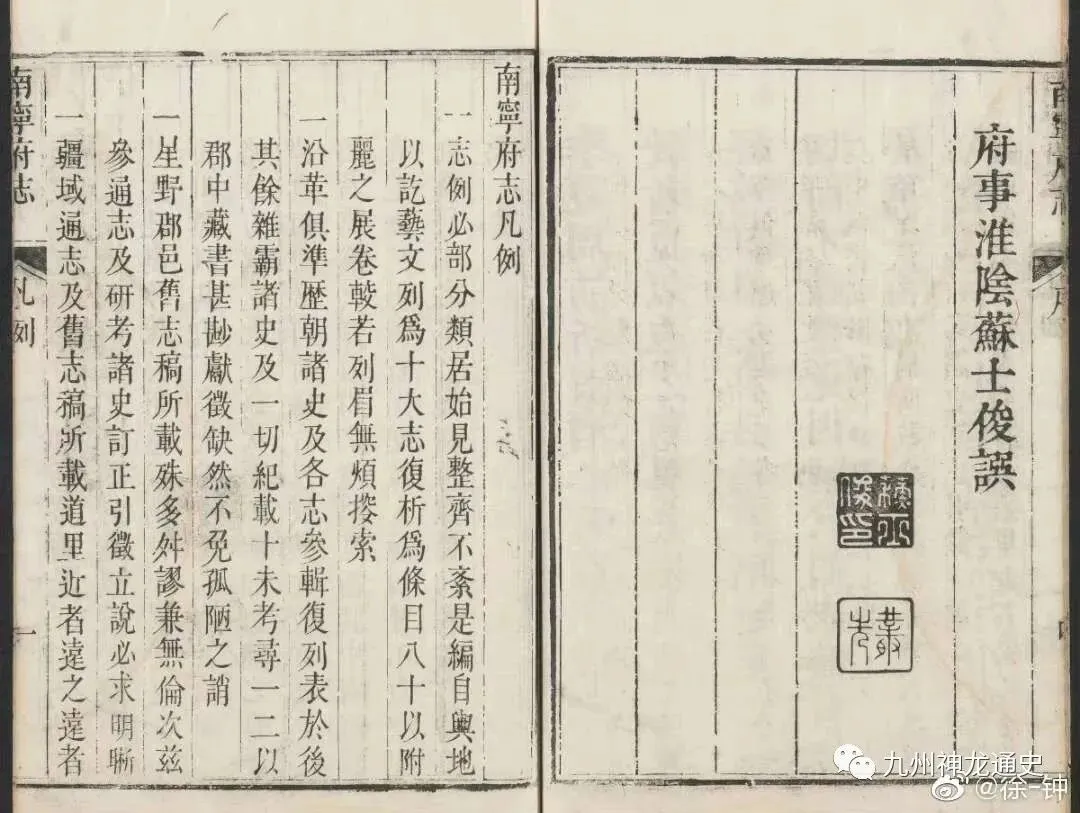 府事淮陰蘇士俊譔
南寧府志凡例
一志例必部分類居始見整齊不紊是編自輿地
以訖藝文列爲十大志復析爲條目八十以附
麗之展卷較若列眉無煩揆索
一沿革俱準歷朝諸史及各志參輯復列表於後
其餘雜霸諸史及一切紀載十未考尋一二以
郡中藏書甚尠獻徵缺然不免孤陋之誚
一星野郡邑舊志稿所載殊多舛謬兼無倫次茲
參通志及研考諸史訂正引徵立說必求明晰
一疆域通志及舊志稿所載道里近者遠之遠者
南寧府志
凡例
一
九州神龙通史
@徐-钟